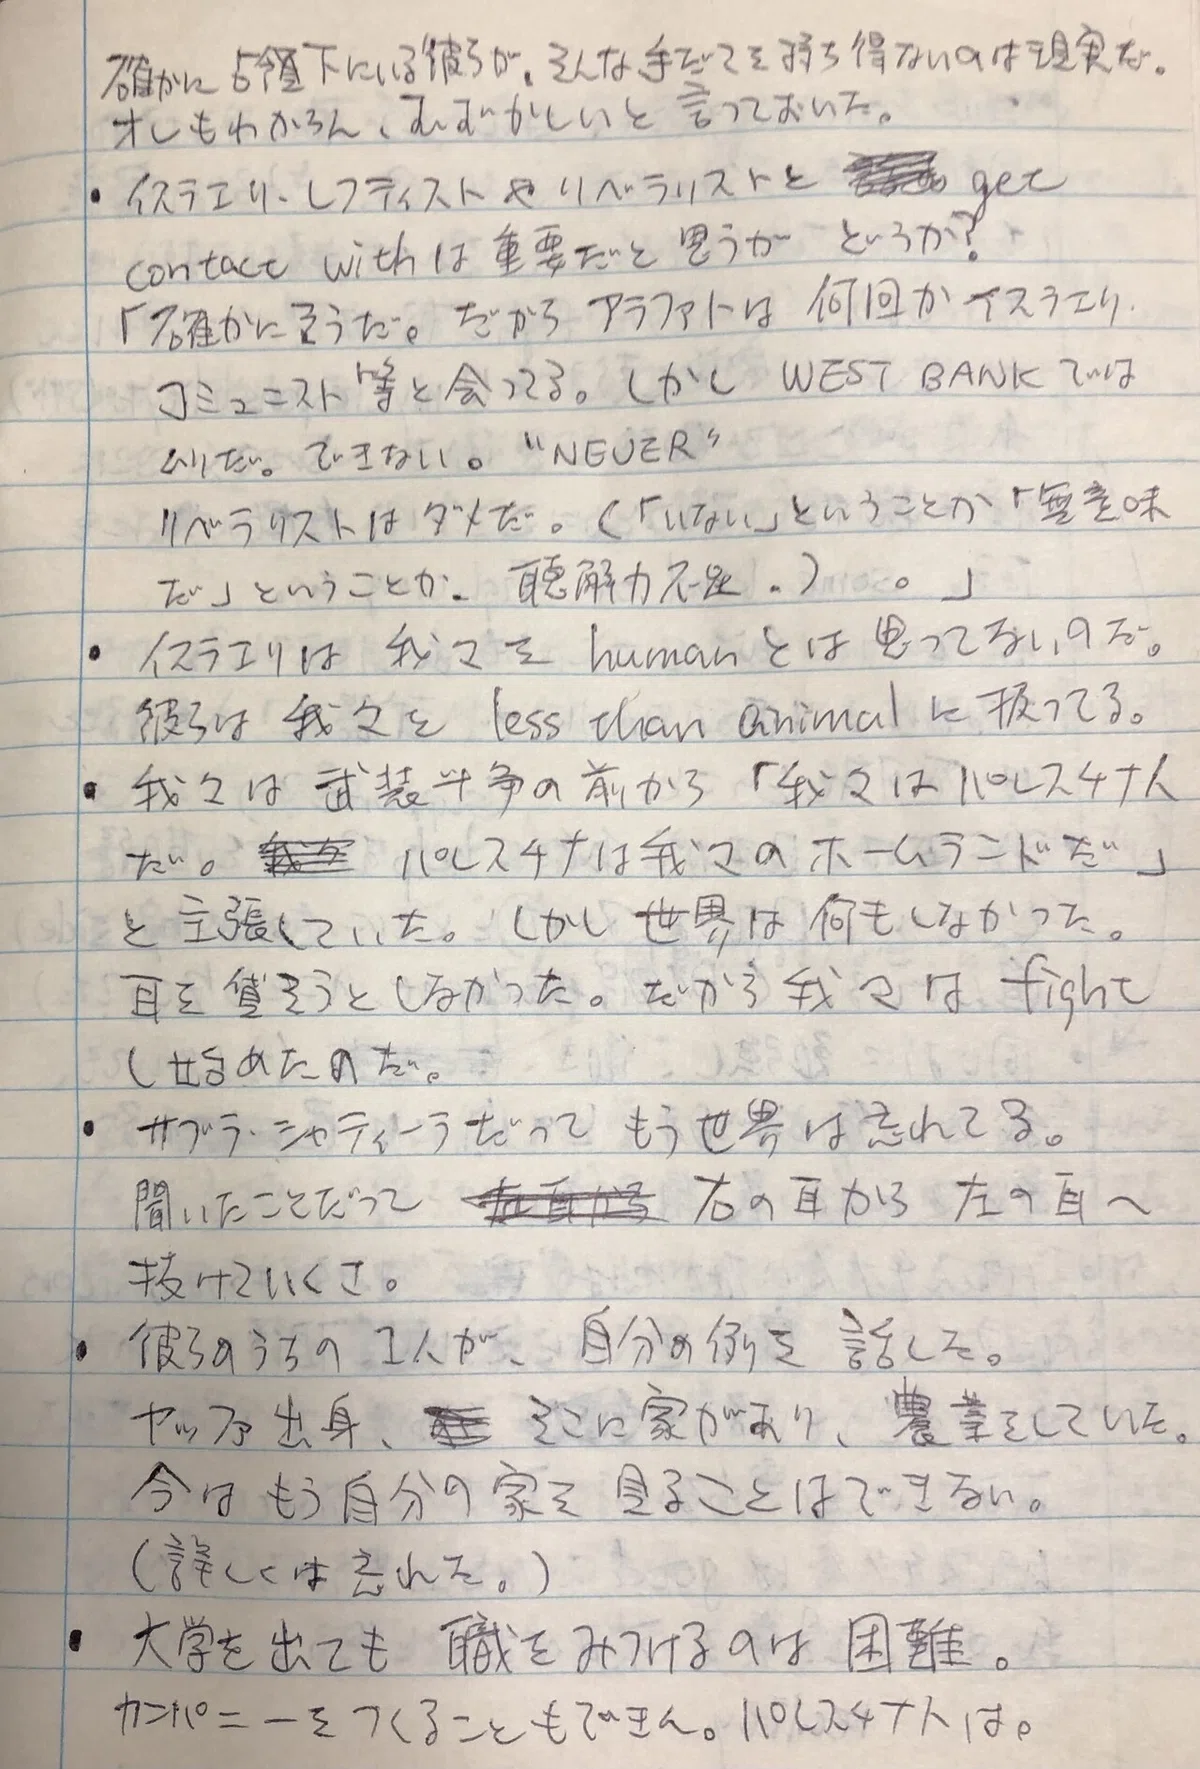 確かに占領下にいる彼らが、そんな手だてを持ち得ないのは現実だ。
オレもわからん、むずかしいと言っておいた。
・イスラエリ・レフティストやリベラリストと get
contact withは重要だと思うが どうか?
「確かにそうだ。だから アラファトは 何回かイスラエリ・
コミュニスト等と会ってる。しかし WEST BANKでは
ムリだ。できない。"NEVER"
リベラリストはダメだ。(「いない」ということか「無意味
だ」ということか。聴解力不足.)。」
・イスラエリは 我々を humanとは思ってないのだ。
彼らは 我々を less than animalに扱ってる。
・我々は 武装斗争の前から「我々はパレスチナ人
だ。パレスチナは我々のホームランドだ」
と主張していた。しかし世界は何もしなかった。
耳を貸そうとしなかった。だから我々は fight
し始めたのだ。
・サブラ・シャティーラだって もう世界は忘れてる。
聞いたことだって 右の耳から 左の耳へ
抜けていくさ。
・彼らのうちの1人が、自分の例を話した。
ヤッファ出身、そこに家があり、農業をしていた。
今はもう自分の家を見ることはできない。
(詳しくは忘れた。)
・大学を出ても 職をみつけるのは困難。
カンパニーをつくることもできん。パレスチナ人は。